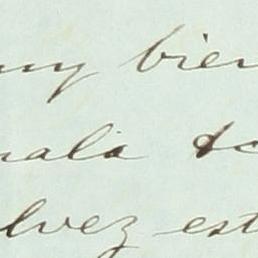 muy bien
mala
lvez est